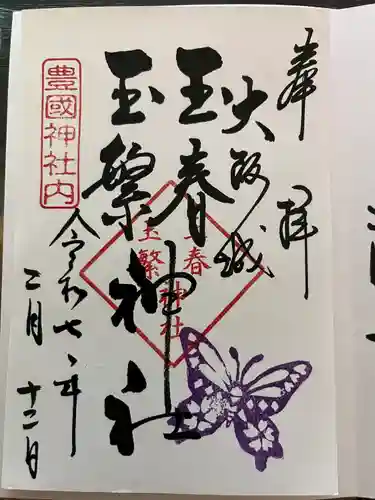 奉拝
大阪城
玉春
玉繁神社
豊國神社内
玉春
玉繁神社
令和七年
二月十二日